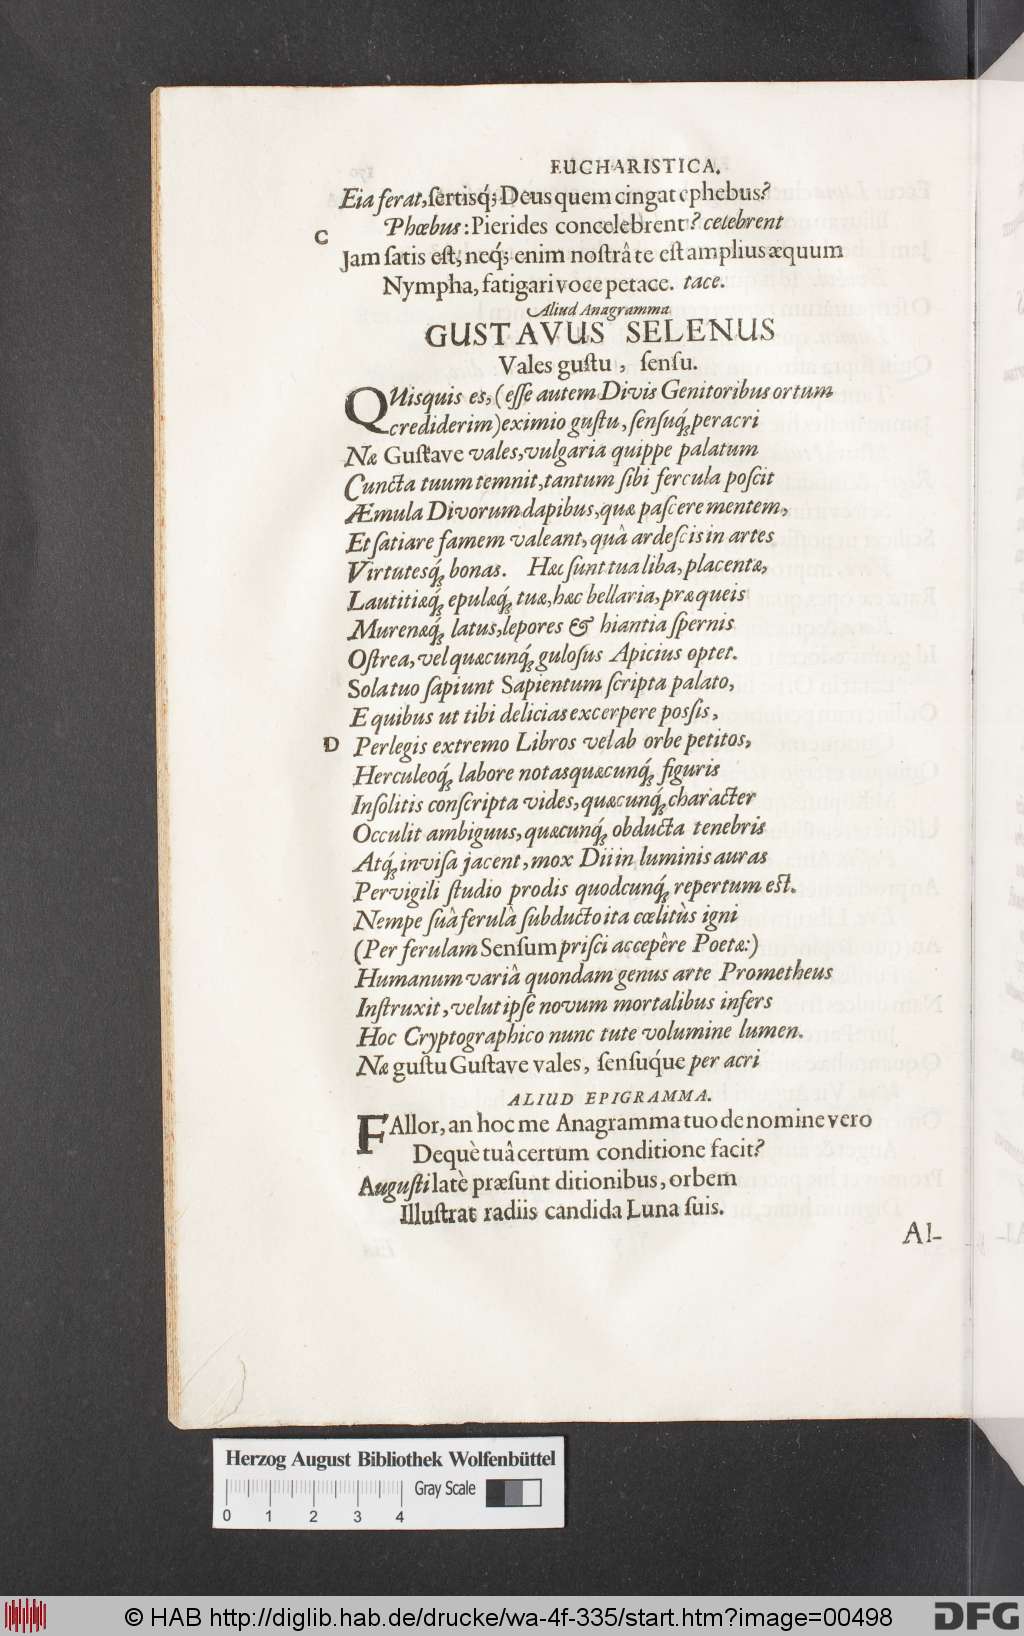 EUCHARISTICA.
Eia ferat, ſertisq́; Deus quem cingat ephebus?
Phœbus: Pierides concelebrent? celebrent
C
Jam ſatis eſt, neq́; enim noſtrâ te eſt amplius æquum
Nympha, fatigari voce petace. tace.
Aliud Anagramma
GUSTAVUS SELENUS
Vales guſtu, ſenſu.
QUisquis es, (eſſe autem Divis Genitoribus ortum
crediderim) eximio guſtu, ſenſuq́; peracri
Næ Guſtave vales, vulgaria quippe palatum
Cuncta tuum temnit, tantum ſibi fercula poſcit
Æmula Divorum dapibus, quæ paſcere mentem,
Et ſatiare famem valeant, quâ ardeſcis in artes
Virtutesq́; bonas. Hæc ſunt tua liba, placentæ,
Lautitiæq́; epulæq́; tuæ, hæc bellaria, præ queis
Murenæq́; latus, lepores & hiantia ſpernis
Oſtrea, vel quæcunq́; guloſus Apicius optet.
Sola tuo ſapiunt Sapientum ſcripta palato,
E quibus ut tibi delicias excerpere poſsis,
D
Perlegis extremo Libros vel ab orbe petitos,
Herculeoq́; labore notas quæcunq́; figuris
Inſolitis conſcripta vides, quæcunq́; character
Occulit ambiguus, quæcunq́; obducta tenebris
Atq́; inviſa jacent, mox Diiin luminis auras
Pervigili ſtudio prodis quodcunq́; repertum eſt.
Nempe ſuâ ferulâ ſubducto ita cœlitùs igni
(Per ferulam Senſum priſci accepêre Poetæ:)
Humanum variâ quondam genus arte Prometheus
Inſtruxit, velut ipſe novum mortalibus infers
Hoc Cryptographico nunc tute volumine lumen.
Næ guſtu Guſtave vales, ſenſuq́ue per acri
ALIUD EPIGRAMMA.
FAllor, an hoc me Anagramma tuo de nomine vero
Dequè tuâ certum conditione facit?
Auguſti latè præſunt ditionibus, orbem
Illuſtrat radiis candida Luna ſuis.
Al-
Herzog August Bibliothek Wolfenbüttel
Gray Scale
0 1 2 3 4
© HAB http://diglib.hab.de/drucke/wa-4f-335/start.htm?image=00498
DFG